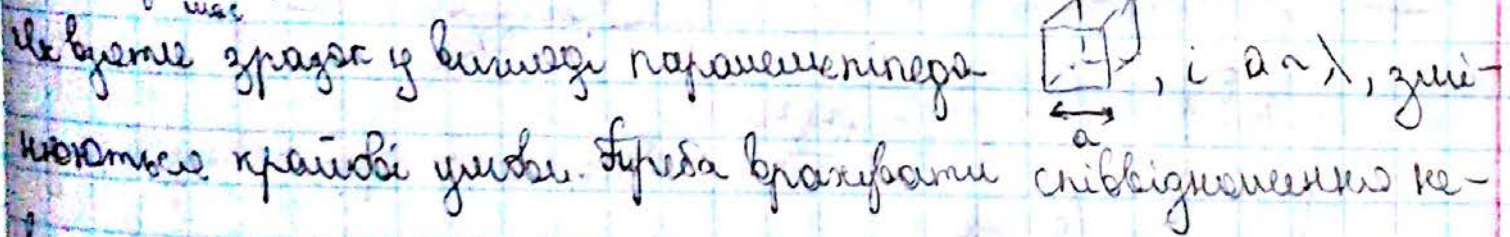 взяти зразок у вигляді паралелепіпеда, і a ~ λ, змі-
a
нюються крайові умови. Треба врахувати співвідношення не-